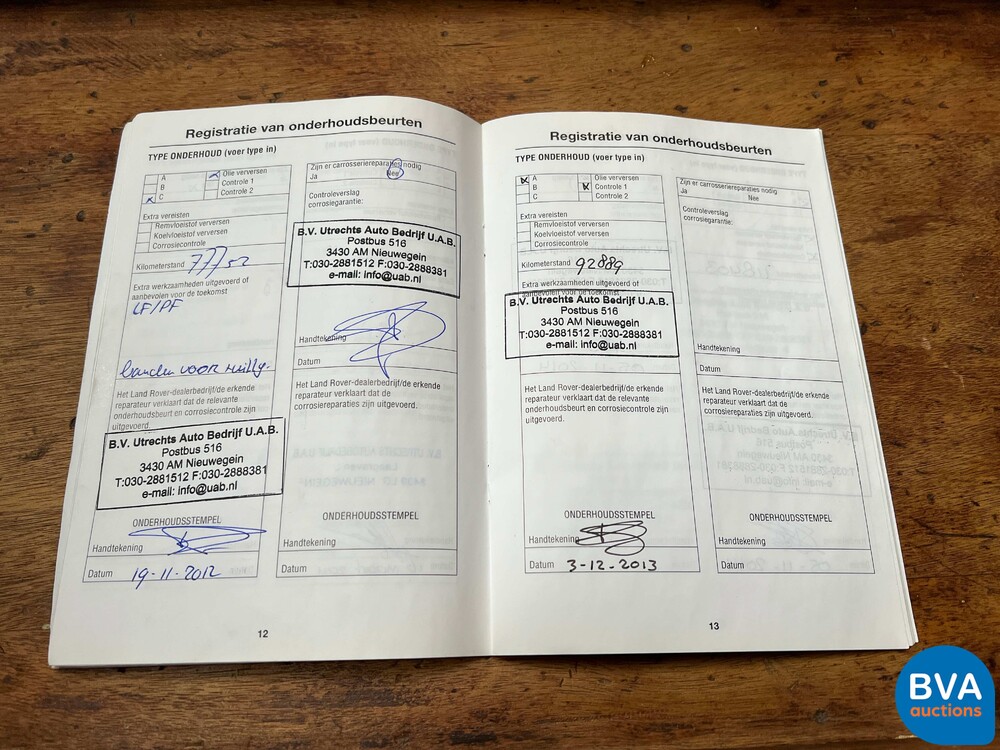 Registratie van onderhoudsbeurten
TYPE ONDERHOUD (voer type in)
A
B
C
Olie verversen
Controle 1
Controle 2
Extra vereisten
Remvloeistof verversen
Koelvloeistof verversen
Corrosiecontrole
Kilometerstand 77752
Extra werkzaamheden uitgevoerd of
aanbevolen voor de toekomst
LF/PF
banden voor
Het Land Rover-dealerbedrijf/de erkende
reparateur verklaart dat de relevante
onderhoudsbeurt en corrosiecontrole zijn
uitgevoerd.
B.V. Utrechts Auto Bedrijf U.A.B.
Postbus 516
3430 AM Nieuwegein
T:030-2881512 F:030-2888381
e-mail: info@uab.nl
ONDERHOUDSSTEMPEL
Handtekening
Datum 19-11-2012
Zijn er carrosseriereparaties nodig
Ja Nee
Controleverslag
corrosiegarantie:
B.V. Utrechts Auto Bedrijf U.A.B.
Postbus 516
3430 AM Nieuwegein
T:030-2881512 F:030-2888381
e-mail: info@uab.nl
Handtekening
Datum
Het Land Rover-dealerbedrijf/de erkende
reparateur verklaart dat de
corrosiereparaties zijn uitgevoerd.
ONDERHOUDSSTEMPEL
Handtekening
Datum
12
Registratie van onderhoudsbeurten
TYPE ONDERHOUD (voer type in)
A
B
C
Olie verversen
Controle 1
Controle 2
Extra vereisten
Remvloeistof verversen
Koelvloeistof verversen
Corrosiecontrole
Kilometerstand 92889
Extra werkzaamheden uitgevoerd of
aanbevolen voor de toekomst
B.V. Utrechts Auto Bedrijf U.A.B.
Postbus 516
3430 AM Nieuwegein
T:030-2881512 F:030-2888381
e-mail: info@uab.nl
Het Land Rover-dealerbedrijf/de erkende
reparateur verklaart dat de relevante
onderhoudsbeurt en corrosiecontrole zijn
uitgevoerd.
ONDERHOUDSSTEMPEL
Handtekening
Datum 3-12-2013
Zijn er carrosseriereparaties nodig
Ja Nee
Controleverslag
corrosiegarantie:
Handtekening
Datum
Het Land Rover-dealerbedrijf/de erkende
reparateur verklaart dat de
corrosiereparaties zijn uitgevoerd.
ONDERHOUDSSTEMPEL
Handtekening
Datum
13
BVA
auctions